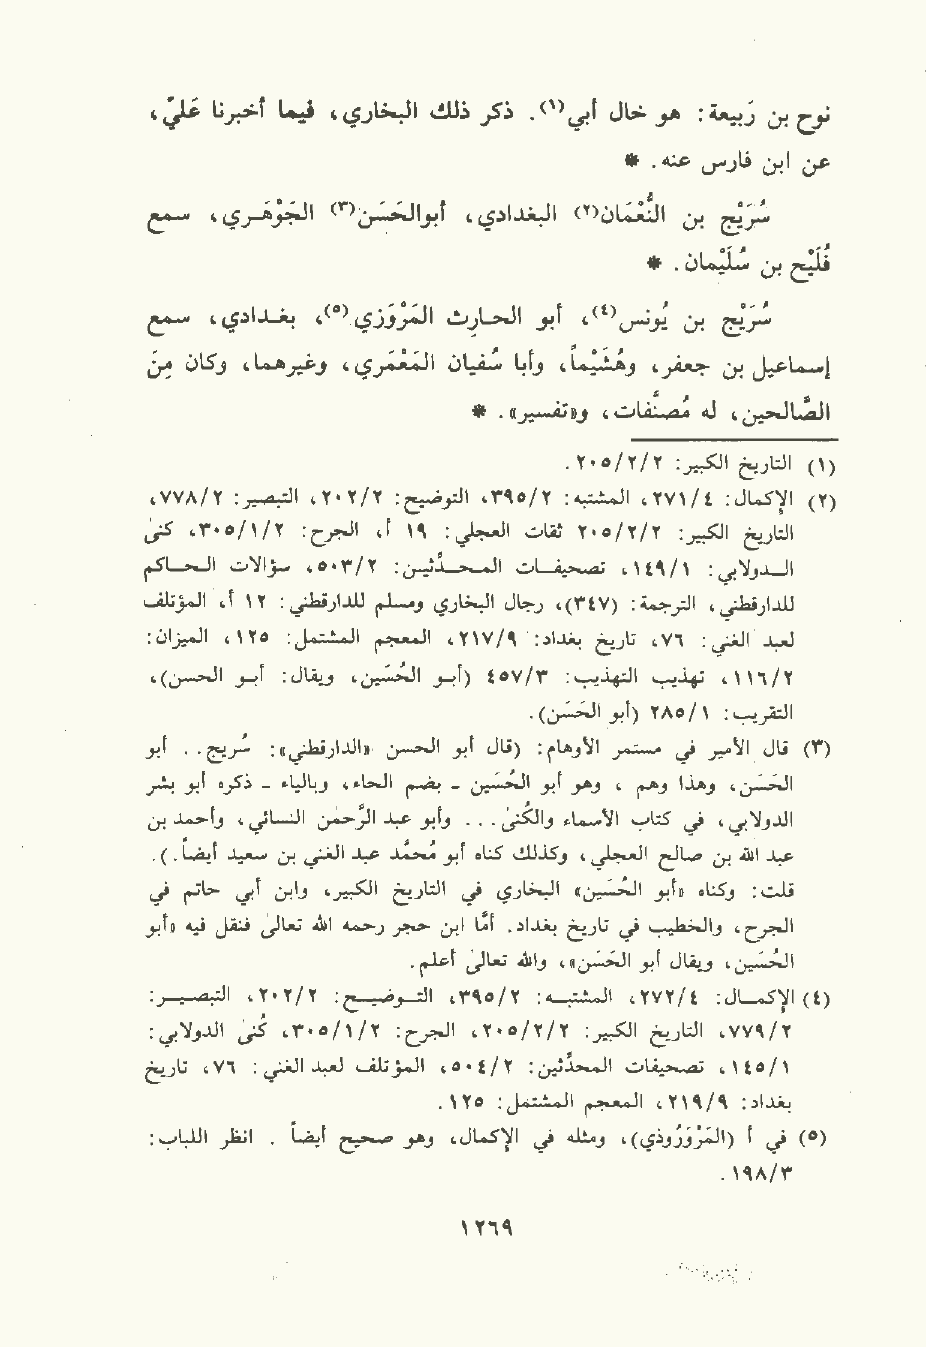 نوح بن رَبيعة: هو خال أبي(١). ذكر ذلك البخاري، فيما أخبرنا عَليّ،
عن ابن فارس عنه. *
سُرَيْج بن النُّعْمَان(٢) البغدادي، أبوالحَسَن(٣) الجَوْهَري، سمع
فُلَيْح بن سُلَيْمان. *
سُرَيْج بن يُونس(٤)، أبو الحارث المَرْوَزي(٥)، بغدادي، سمع
إسماعيل بن جعفر، وهُشَيْماً، وأبا سُفيان المَعْمَري، وغيرهما، وكان مِنَ
الصَّالحين، له مُصنَّفات، و«تفسير». *
(١) التاريخ الكبير: ٢/٢/٢٠٥.
(٢) الإكمال: ٤/٢٧١، المشتبه: ٢/٣٩٥، التوضيح: ٢/٢٠٢، التبصير: ٢/٧٧٨،
التاريخ الكبير: ٢/٢/٢٠٥ ثقات العجلي: ١٩ أ، الجرح: ٢/١/٣٠٥، كنىٰ
الدولابي: ١/١٤٩، تصحيفات المحدّثين: ٢/٥٠٣، سؤالات الحاكم
للدارقطني، الترجمة: (٣٤٧)، رجال البخاري ومسلم للدارقطني: ١٢ أ، المؤتلف
لعبد الغني: ٧٦، تاريخ بغداد: ٩/٢١٧، المعجم المشتمل: ١٢٥، الميزان:
٢/١١٦، تهذيب التهذيب: ٣/٤٥٧ (أبو الحُسَين، ويقال: أبو الحسن)،
التقريب: ١/٢٨٥ (أبو الحَسَن).
(٣) قال الأمير في مستمر الأوهام: (قال أبو الحسن «الدارقطني»: سُريج.. أبو
الحَسَن، وهذا وهم ، وهو أبو الحُسَين - بضم الحاء، وبالياء - ذكره أبو بشر
الدولابي، في كتاب الأسماء والكُنىٰ... وأبو عبد الرَّحمن النسائي، وأحمد بن
عبد الله بن صالح العجلي، وكذلك كناه أبو مُحمَّد عبد الغني بن سعيد أيضاً.).
قلت: وكناه «أبو الحُسين» البخاري في التاريخ الكبير، وابن أبي حاتم في
الجرح، والخطيب في تاريخ بغداد. أمّا ابن حجر رحمه الله تعالىٰ فنقل فيه «أبو
الحُسَين، ويقال أبو الحَسَن»، والله تعالىٰ أعلم.
(٤) الإكمال: ٤/٢٧٢، المشتبه: ٢/٣٩٥، التوضيح: ٢/٢٠٢، التبصير:
٢/٧٧٩، التاريخ الكبير: ٢/٢/٢٠٥، الجرح: ٢/١/٣٠٥، كُنىٰ الدولابي:
١/١٤٥، تصحيفات المحدّثين: ٢/٥٠٤، المؤتلف لعبد الغني: ٧٦، تاريخ
بغداد: ٩/٢١٩، المعجم المشتمل: ١٢٥.
(٥) في أ (المَرْوَرُوذي)، ومثله في الإكمال، وهو صحيح أيضاً . انظر اللباب:
٣/١٩٨.
١٢٦٩